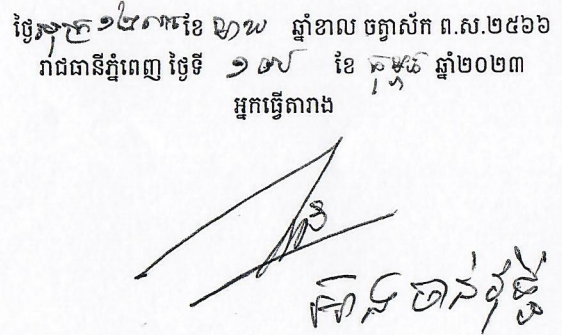 ថ្ងៃសុក្រ ១២រោច ខែ មាឃ ឆ្នាំខាល ចត្វាស័ក ព.ស.២៥៦៦
រាជធានីភ្នំពេញ ថ្ងៃទី ១៧ ខែ កុម្ភៈ ឆ្នាំ២០២៣
អ្នកធ្វើតារាង
អ៊ាង ចាន់វុទ្ធី